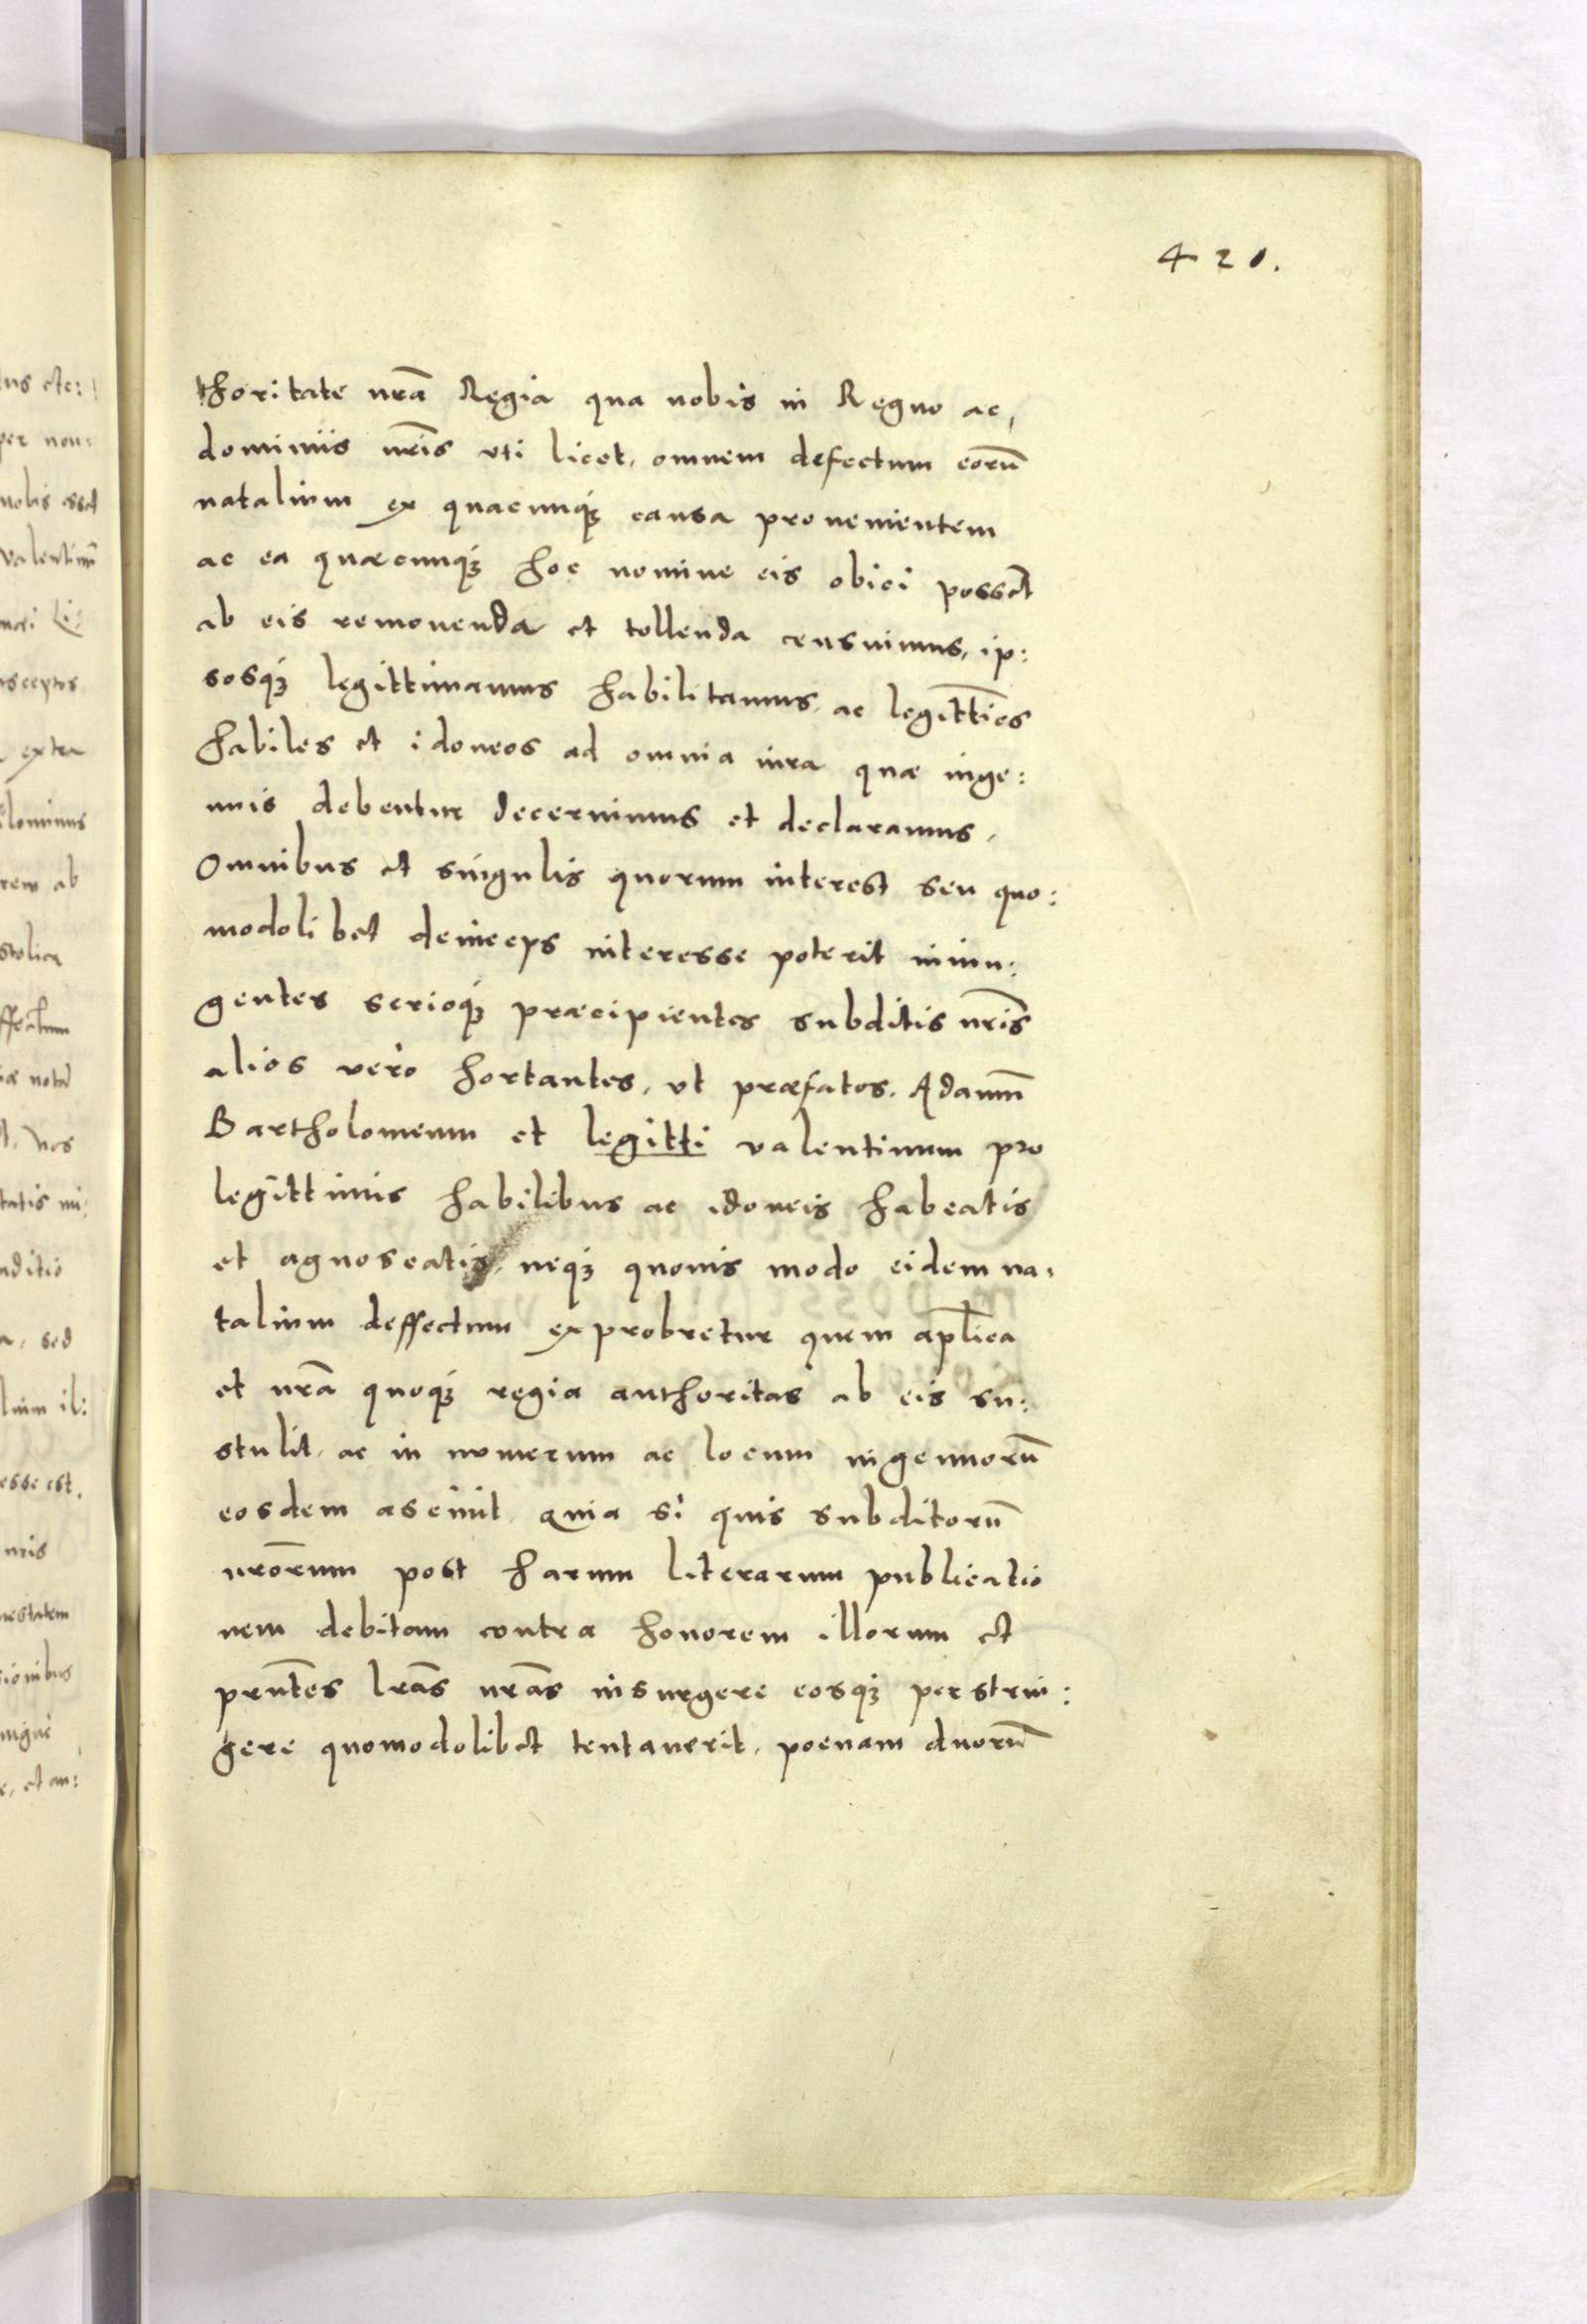 420.
thoritate nrā Regia qua nobis in Regno ac,
dominiis nr̄is vti licet, omnem defectum eorū
natalium ex quacunqꝫ causa prouenientem
ac ea quæcunqꝫ hoc nomine eis obici possēt
ab eis remouenda et tollenda censuimus, ip:
sosqꝫ legittimamus habilitamus, ac legittīos
habiles et idoneos ad omnia iura quæ inge:
nuis debentur decernimus et declaramus,
Omnibus et singulis quorum interest seu quo:
modolibet deinceps interesse poterit iniun:
gentes serioqꝫ præcipientes subditis nr̄is
alios vero hortantes, vt præfatos, Adamū
Bartholomeum et legitti valentinum pro
legittimis habilibus ac idoneis habeatis
et agnoscatis, neqꝫ quouis modo eidem na,
talium deffectum exprobretur quem apl̄ica
et nrā quoqꝫ regia authoritas ab eis su:
stulit, ac in numerum ac locum ingenuorū
eosdem asciuit, quia si quis subditorū
nrōrum post harum literarum publicatio
nem debitam contra honorem illorum et
prn̄tes lrās nrās insurgere eosqꝫ perstrin:
gere quomodolibet tentauerit, poenam duorū
tus etc:
per non:
nobis esset
valentinū
mari Li:
usceptos
extra
ilominus
rem ab
stolica
ffectum
iæ nota
t, Nos
tatis ni:
nditio
a, sed
lium il:
esse est,
nris
nestatem
ionibus
ingue
e, et au: